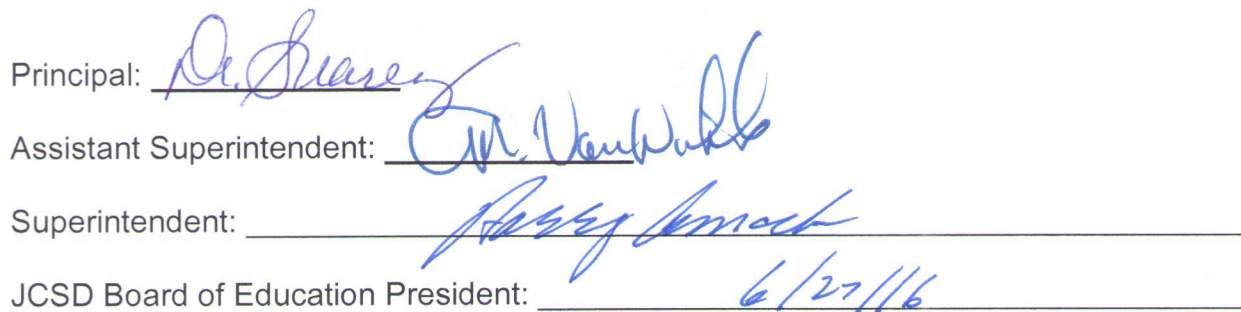 Principal: Dr. Suarez
Assistant Superintendent:
Superintendent:
JCSD Board of Education President: 6/27/16